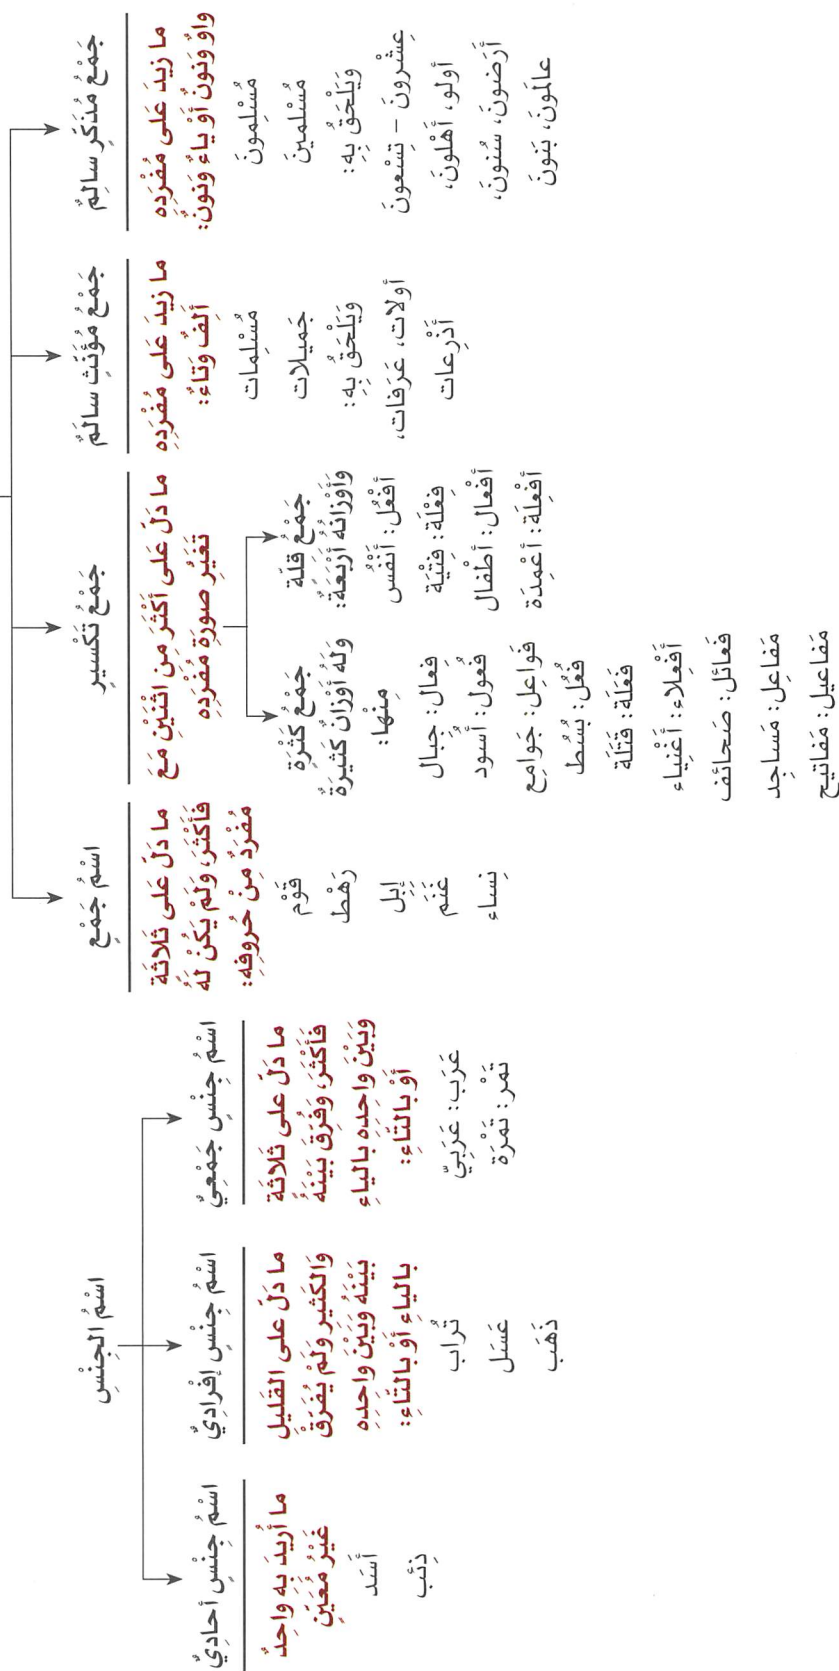 جَمْعُ مُذَكَّرٍ سالِمٌ
ما زيدَ عَلى مُفْرَدِهِ
واوٌ وَنونٌ أَوْ ياءٌ وَنونٌ:
مُسْلِمونَ
مُسْلِمينَ
وَيَلْحَقُ بِهِ:
عِشْرونَ – تِسْعونَ
أولو، أَهْلونَ،
أَرَضونَ، سُنونَ،
عالَمونَ، بَنونَ
جَمْعُ مُؤَنَّثٍ سالِمٌ
ما زيدَ عَلى مُفْرَدِهِ
أَلِفٌ وَتاءٌ:
مُسْلِمات
جَميلات
وَيَلْحَقُ بِهِ:
أولات، عَرَفات،
أَذْرِعات
جَمْعُ تَكْسيرٍ
ما دَلَّ عَلى أَكْثَرَ مِن اثْنَيْنِ مَعَ
تَغَيُّرِ صورَةِ مُفْرَدِهِ
جَمْعُ قِلَّة
وَأَوْزانُهُ أَرْبَعَةٌ:
أَفْعُل: أَنْفُس
فِعْلَة: فِتْيَة
أَفْعال: أَطْفال
أَفْعِلَة: أَعْمِدَة
جَمْعُ كَثْرَة
وَلَهُ أَوْزانٌ كَثيرَةٌ
مِنْها:
فِعال: جِبال
فُعُول: أُسُود
فَواعِل: جَوامِع
فُعُل: بُسُط
فَعَلَة: قَتَلَة
أَفْعِلاء: أَغْنِياء
فَعائل: صَحائف
مَفاعِل: مَساجِد
مَفاعيل: مَفاتيح
اسْمُ جَمْعٍ
ما دَلَّ عَلى ثَلاثَة
فَأَكْثَرَ، وَلَمْ يَكُنْ لَهُ
مُفْرَدٌ مِنْ حُروفِهِ:
قَوْم
رَهْط
إِبِل
غَنَم
نِساء
اسْمُ الجِنْسِ
اسْمُ جِنْسٍ جَمْعِيٌّ
ما دَلَّ عَلى ثَلاثَة
فَأَكْثَرَ، وَفُرِّقَ بَيْنَهُ
وَبَيْنَ واحِدِهِ بالياءِ
أَوْ بالتّاءِ:
عَرَب: عَرَبيّ
تَمْر: تَمْرَة
اسْمُ جِنْسٍ إفْرادِيٌّ
ما دَلَّ عَلى القَليلِ
والكَثيرِ وَلَمْ يُفَرَّقْ
بَيْنَهُ وَبَيْنَ واحِدِهِ
بالياءِ أَوْ بالتّاءِ:
تُراب
عَسَل
ذَهَب
اسْمُ جِنْسٍ أحادِيٌّ
ما أُريدَ بِهِ واحِدٌ
غَيْرُ مُعَيَّنٍ
أَسَد
ذِئب